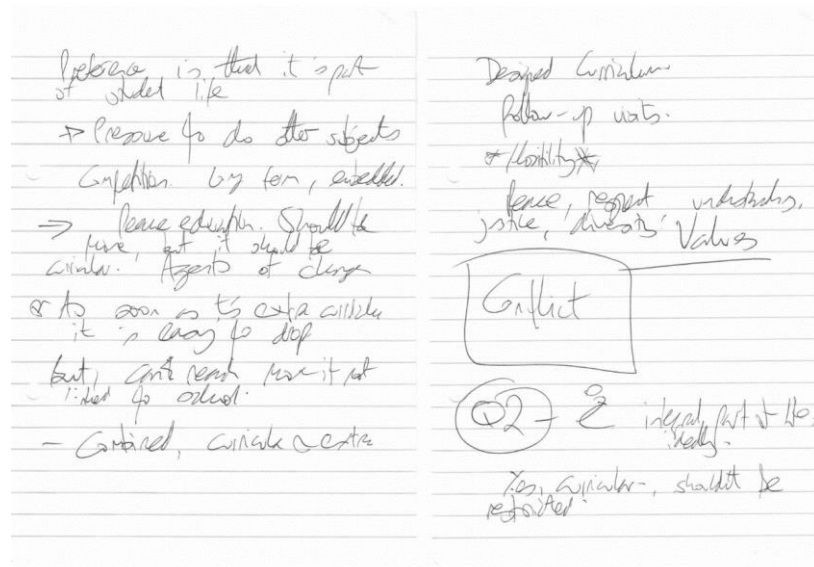 Preference is that it's part
of student life
→ Pressure to do other subjects
Competition. Long term, embedded.
→ Peace education. Should be
more, but it should be
curricular. Agents of change
As soon as it's extra curricular
it is easy to drop
but, can't reach more if not
linked to school.
- Combined, curricular extra
Designed Curriculum.
Follow-up visits.
*Hostility*
Peace, respect understanding,
justice, diversity Values
Conflict
Q2 - integral part of life,
ideally.
Yes, curricular-, shouldn't be
restricted.